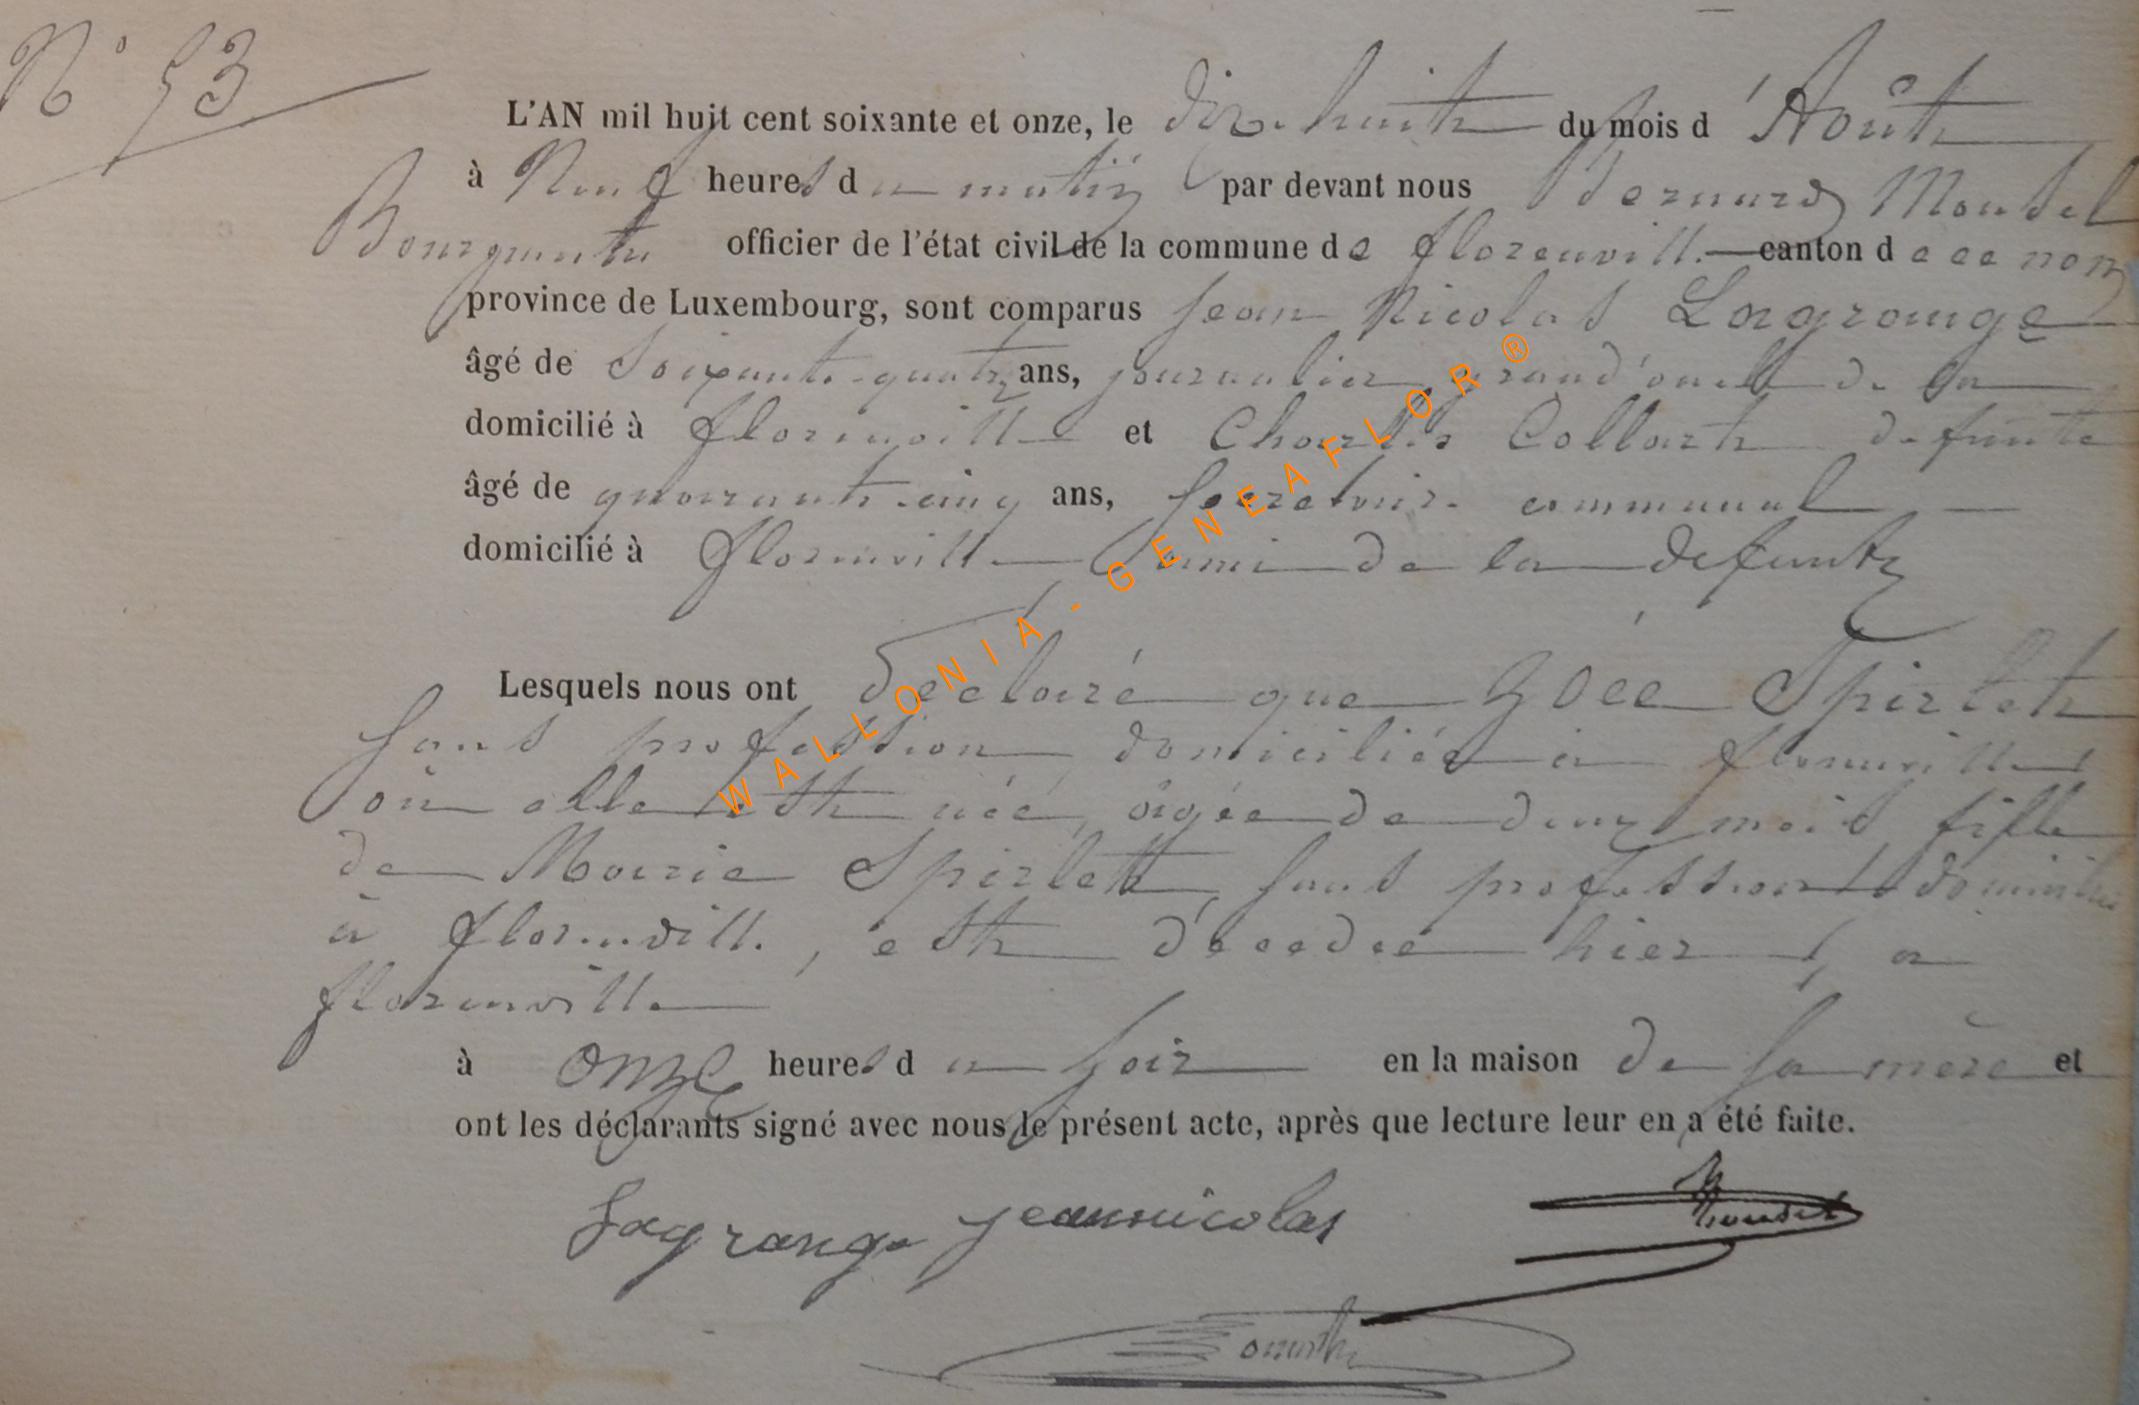 N° 53
L'AN mil huit cent soixante et onze, le dix-huit du mois d'Août
à Neuf heures du matin par devant nous Bernard Moudel
Bourgmestre officier de l'état civil de la commune de florenville canton de ce nom
province de Luxembourg, sont comparus Jean Nicolas Lagrange
âgé de Soixante-quatre ans, journalier, grand'oncle de la
domicilié à florenville et Charles Collart défunte
âgé de quarante-cinq ans, Secretaire communal
domicilié à florenville ami de la défunte
Lesquels nous ont déclaré que Zoée Spirlet
sans profession domiciliée à florenville
où elle est née, âgée de deux mois, fille
de Marie Spirlet, sans profession domiciliée
à florenville, est décedée hier, a
florenville
à onze heures du soir en la maison de sa mère et
ont les déclarants signé avec nous le présent acte, après que lecture leur en a été faite.
Lagrange jeannicolas
WALLONIA-GENEAFLOR®